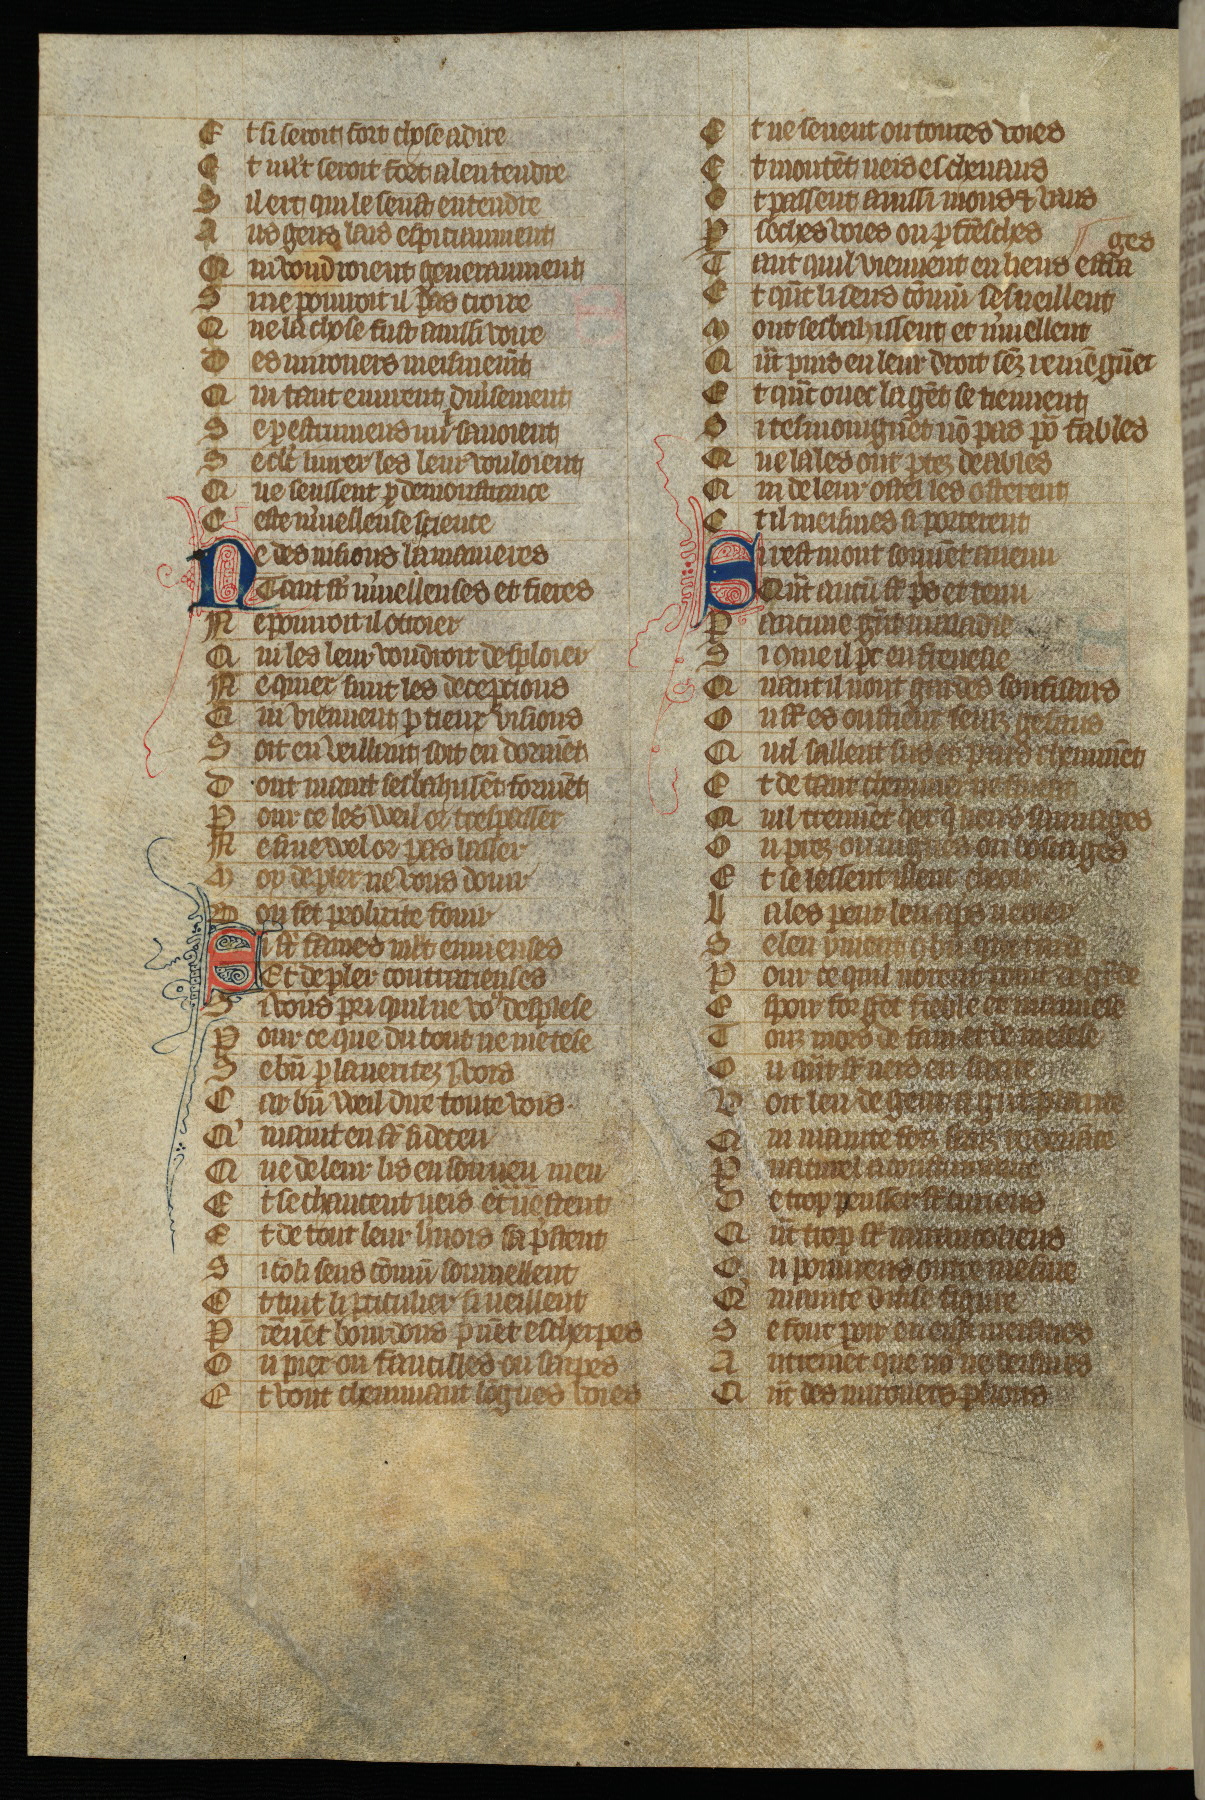 Et si seroit fort chose a dire
Et mlt seroit fort a lentendre
Sil ert qui le seust entendre
A us gens lais espiciaument
Qui voudroient generaument
Si ne pourroit il pas croire
Que la chose fust aussi voire
Des mirouers meismemt
Qui tant euurent diusement
Se p estrumens nu sauoient
Se clt liurer les leur vouloient
Que seussent p demoustrance
Ceste muelleuse science
Ne des uisions la manieres
Tant st muelleuses et fieres
Ne pourroit il otroier
Qui les leur voudroit desploier
Ne quier fuut les decepcions
Qui viennent p tieux visions
Soit en veillant soit en dormēt
Dont maint sesbahissēt formēt
Pour ce les weil or trespasser
Ne si ne wel or pas lasser
Moy de pler ne vous douir
Bon fet prolixite fouir
Si st fames mlt enuieuses
Et de pler contrarieuses
Si vous pri quil ne vo desplese
Pour ce que du tout ne me tese
Se bn p la veritez vois
Car bn weil dire toute vois
Q' maint en st si deceu
Que de leur lis en sont meu
Et se chaucent neis et uestent
Et de tout leur hnois sa pstent
Si cō li sens cōmū sōmellent
Et tuit li pticulier si ueillent
Prēnēt bourdons prēnēt escherpes
Ou piex ou faucilles ou sarpes
Et vont cheminant lōgues voies
Et ne seuent ou toutes voies
Et montēt neis es cheuaus
Et passent aussi mons & vaus
P seches voies ou p fresches
Tant quil viennent en liens estra
ges
Et qūt li sens cōmū sesueillent
Mout sesbahissent et muellent
Qūt puis en leur droit sēz reuiēgnēt
Et qūt ouec la gēt se tiennent
Si tesmoingnēt nō pas po fables
Que la les ont ptez deables
Qui de leur ostel les osterent
Et il meismes si porterent
Si rest mout souuēt auenu
Qūt aucū st pris et tenu
P aucune gnt maladie
Si 9me il pt en frenesie
Quant il nont gardes soufisans
Ou st es oustieus seulz gesans
Quil sallent sus es puis cheminēt
Et de tant cheminer ne finent
Quil treuuēt
Ou prez ou uignes ou boscages
Et se lessent illuec cheoir
La les peut len aps ueoir
Se len y uient
Pour ce quil norent
Espoir for get fieble et mauuese
Touz mors de fain et de mesese
Ou qūt st neis en sante
Voit len de genz a gnt plante
Qui maintes foiz sanz ordenāce
P naturel acoustumance
De trop pensser st curieus
Qūt trop st melancolieus
Ou pooureus outre mesure
Qui mainte diuse figure
Se font paroir en eus meismes
Autremēt que nō ne deismes
Qūt des mirouers plions